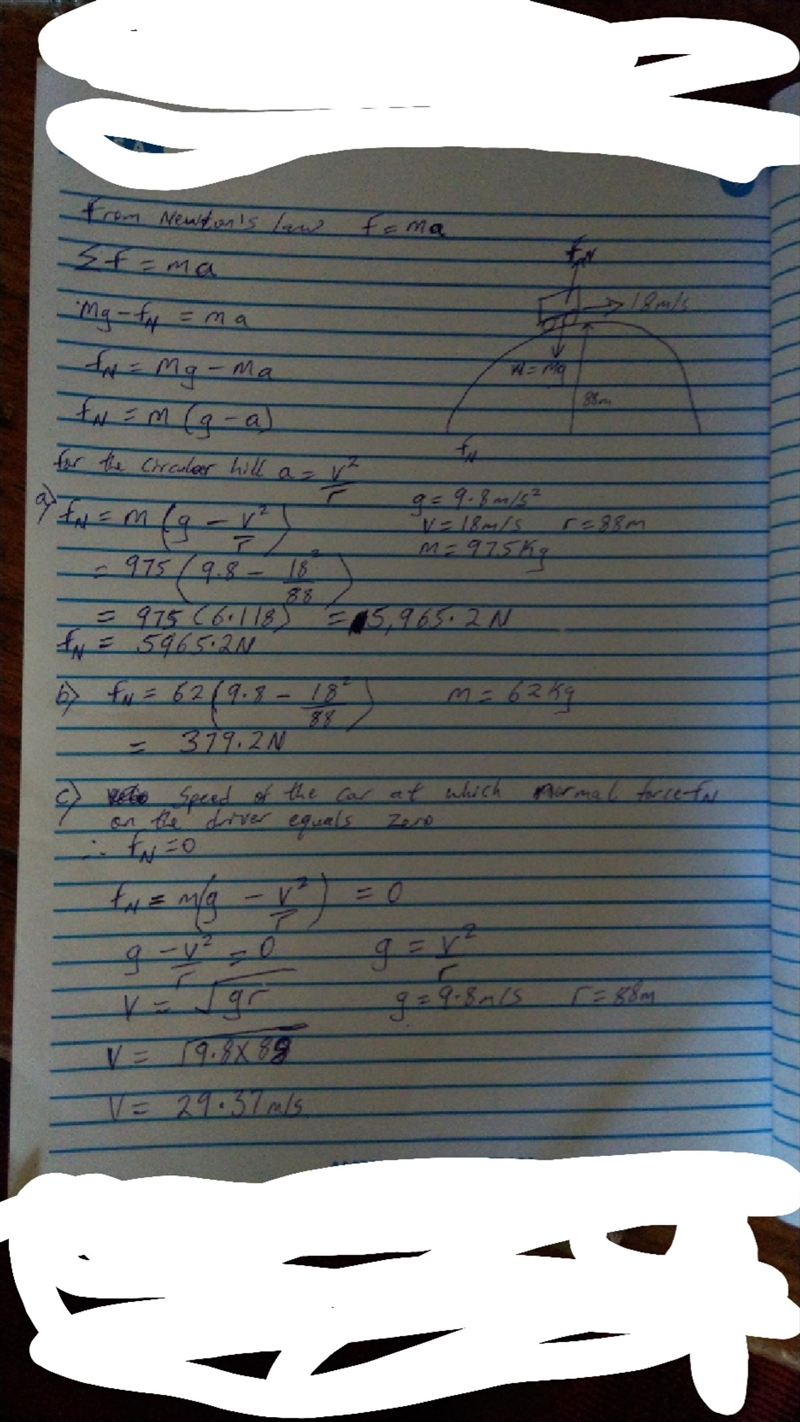 From Newton's law f = ma
Σf = ma
Mg - fN = ma
fN = Mg - Ma
fN = m (g - a)
fN
18m/s
W = Mg
88m
fN
for the circular hill a = v²/r
a) fN = m (g - v²/r)
g = 9.8m/s²
v = 18m/s r = 88m
m = 975kg
= 975 (9.8 - 18²/88)
= 975 (6.118) = 5,965.2N
fN = 5965.2N
b) fN = 62 (9.8 - 18²/88) m = 62kg
= 379.2N
c) Speed of the car at which normal force fN
on the driver equals zero
∴ fN = 0
fN = m(g - v²/r) = 0
g - v²/r = 0 g = v²/r
V = √gr g = 9.8m/s r = 88m
V = √9.8x88
V = 29.37m/s